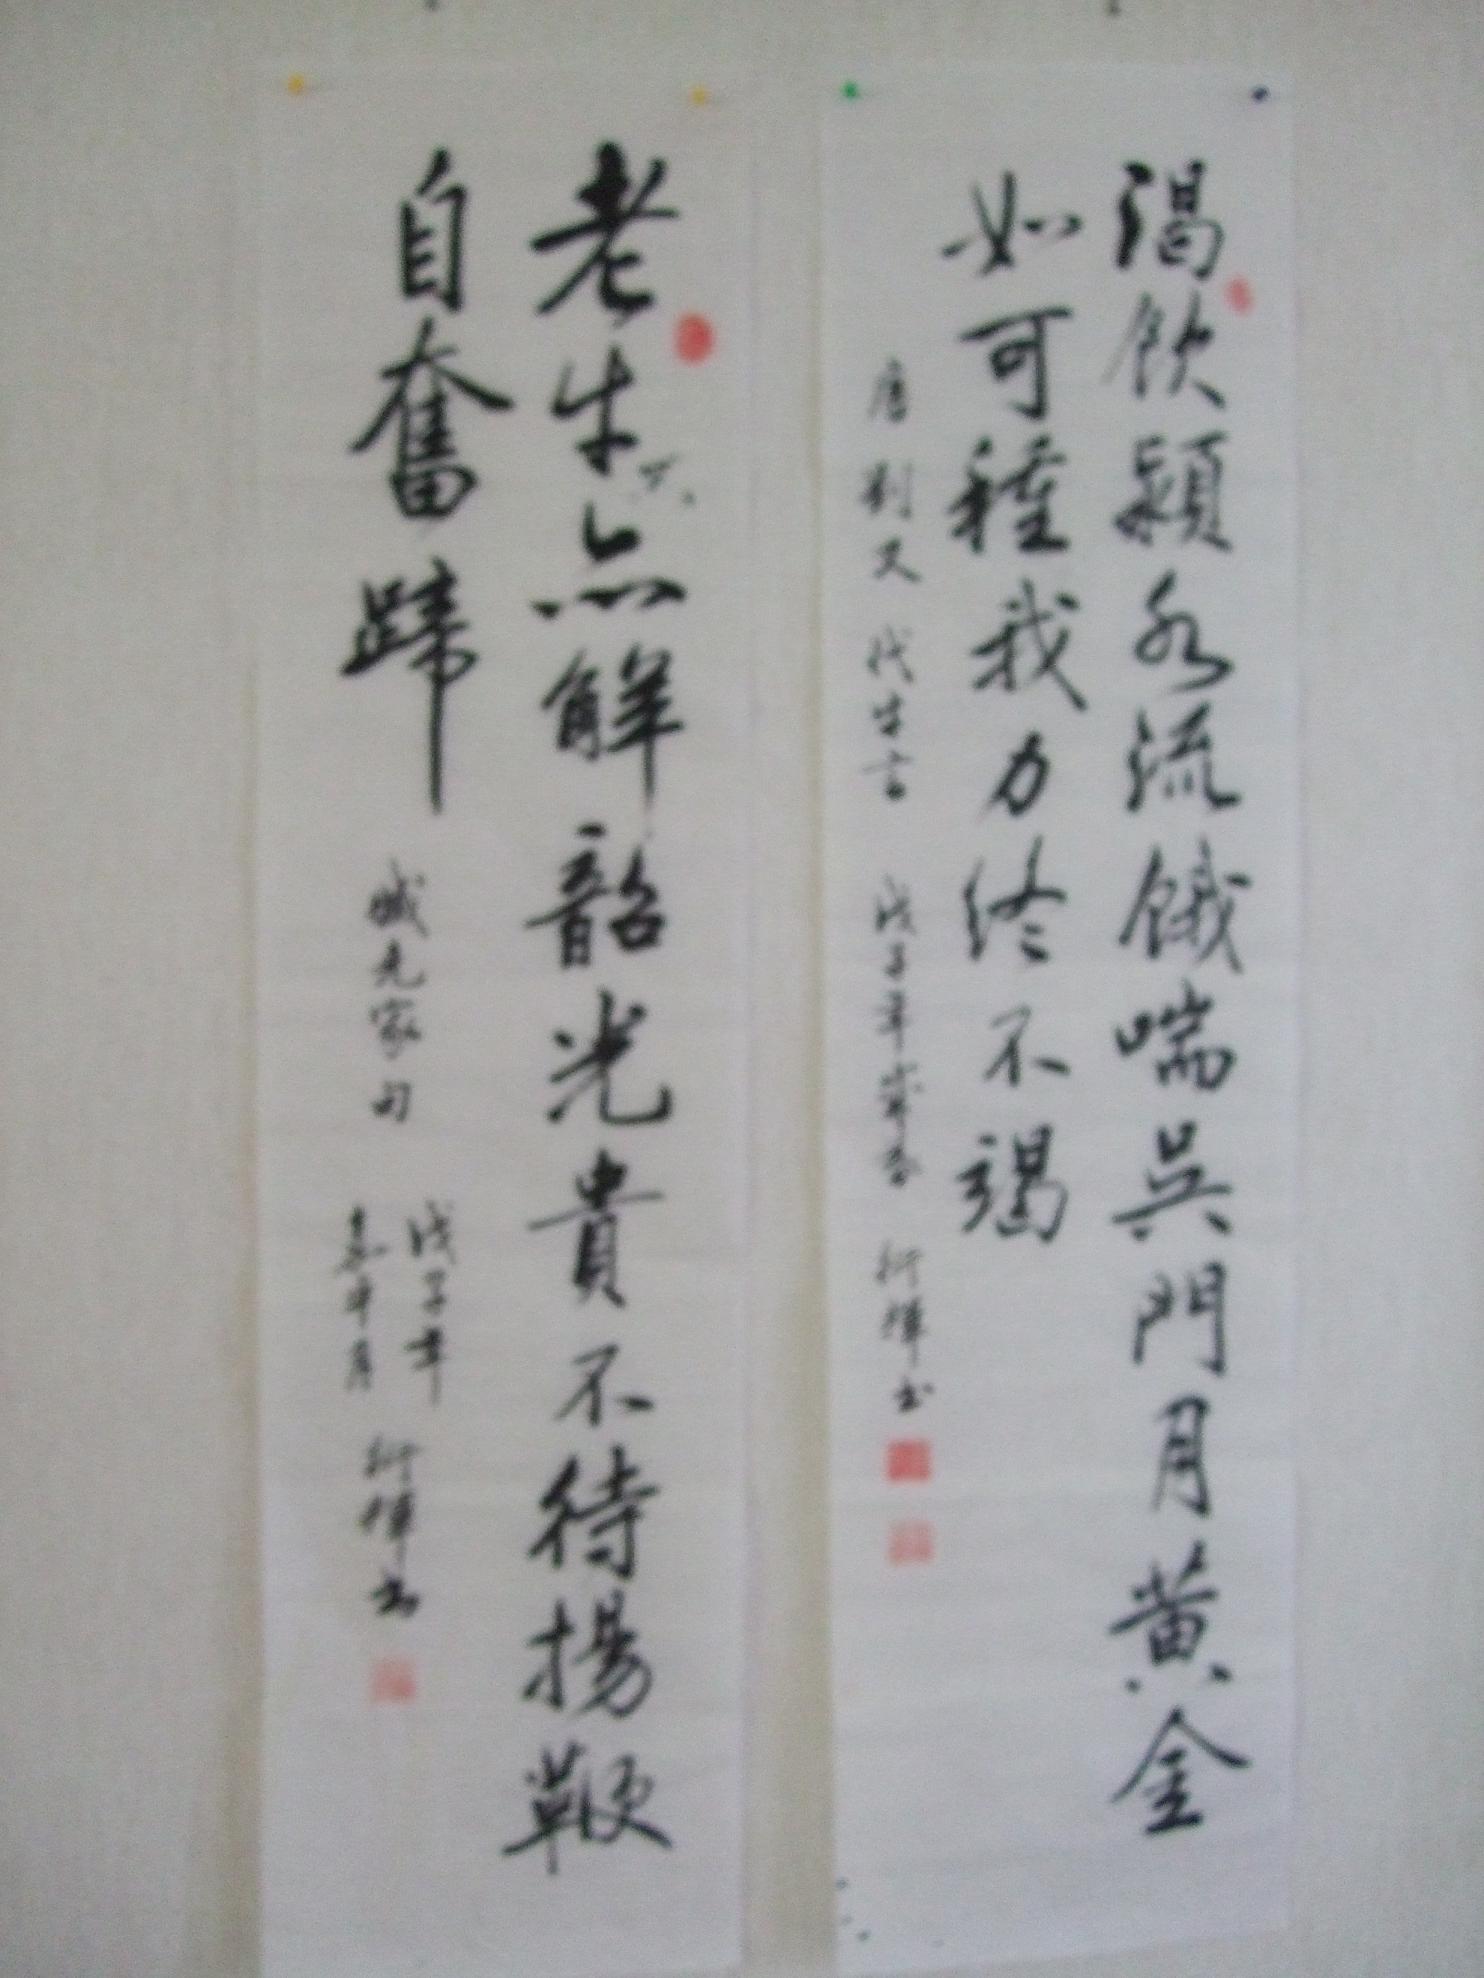 渴飲潁水流餓喘吳門月黃金
如可種我力終不竭
唐 劉叉 代牛言 戊子年歲春 衍輝书
老牛亦解韶光貴不待揚鞭
自奮蹄
臧克家句
戊子年
衍輝书